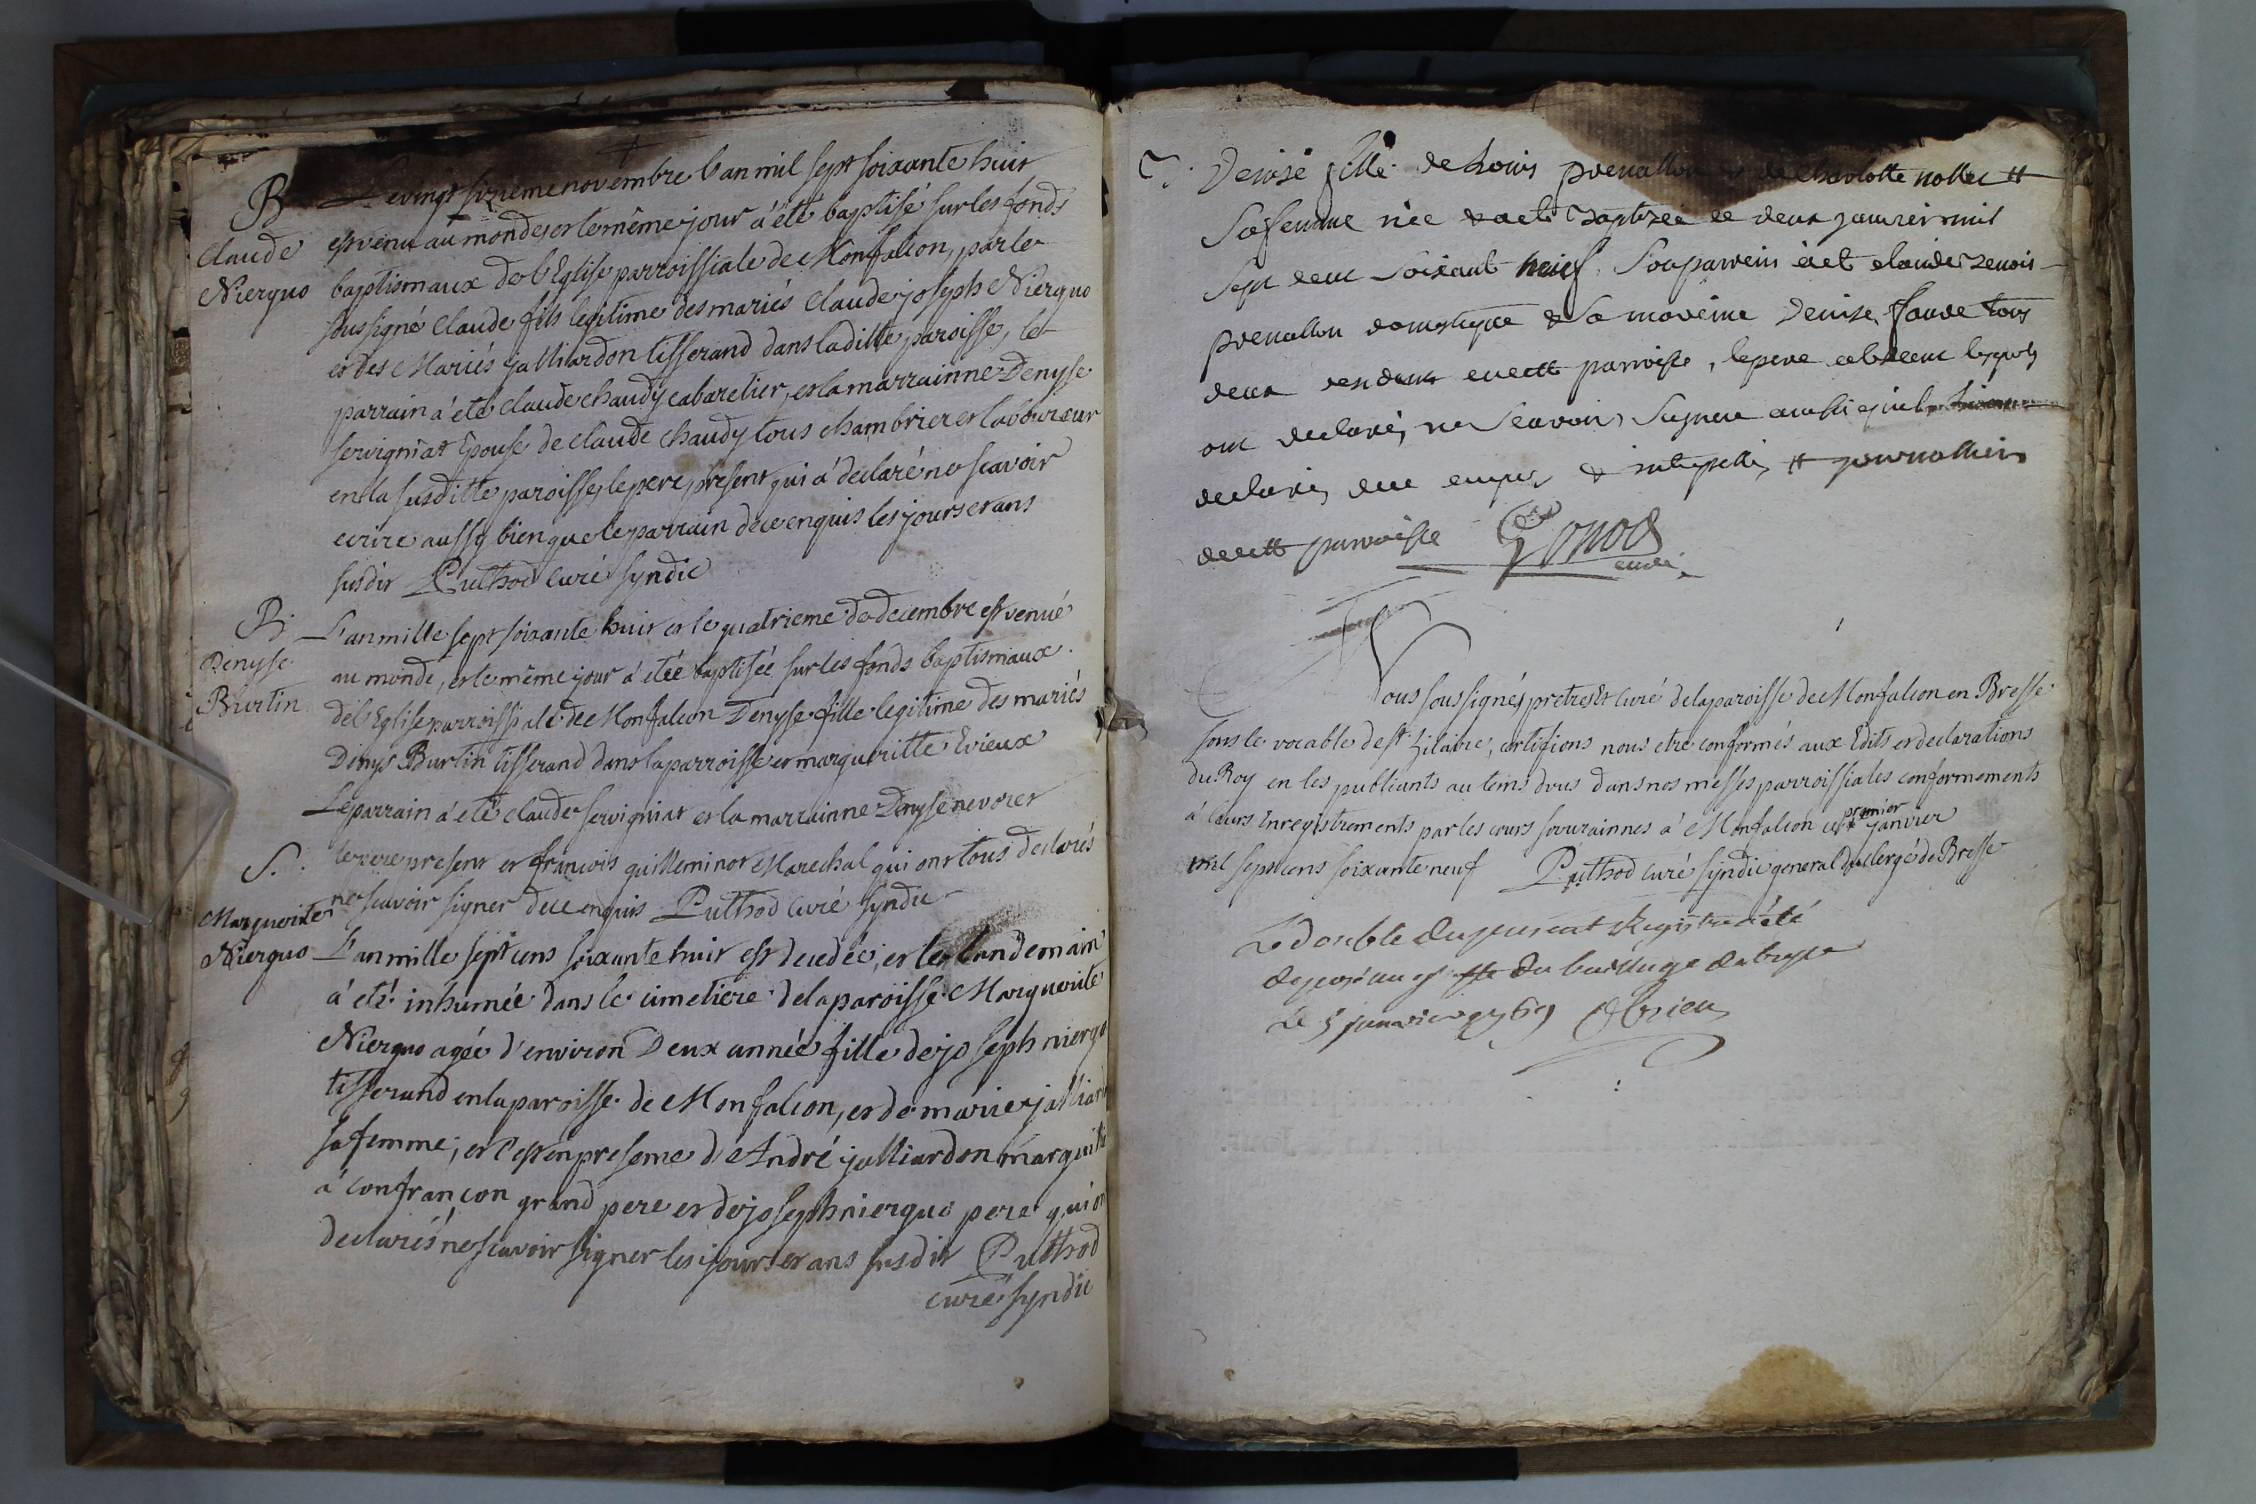 B
Claude
Nierguo
Le vingt sizieme novembre l'an mil sept soixante huit
est venu au monde, et le même jour a été baptisé sur les fonds
baptismaux de l'Eglise parroissiale de Monfalcon, par le
soussigné Claude fils legitime des mariés Claude joseph Nierguo
et des Mariés jalliardon tisserand dans la ditte paroisse, le
parrain a été claude chaudy cabaretier, et la marrainne Denyse
servigniat Epouse de claude chaudy tous chambrier et laboureur
en la susditte paroisse, le pere present qui a declaré ne scavoir
ecrire aussy bien que le parrain de ce enquis les jours et ans
susdit Puthod curé syndic
B.
Denyse
Burtin
L'an mille sept soixante huit et le quatrieme de decembre est venuë
au monde, et le même jour a étée baptisée sur les fonds baptismaux
de l'Eglise parroissiale de Monfalcon Denyse fille legitime des mariés
Denys Burtin tisserand dans la parroisse et margueritte Evieux
Le parrain a été claude servigniat et la marrainne Denyse nevoret
le pere present et francois guilleminot Marechal qui ont tous declarés
ne scavoir signer de ce enquis Puthod curé syndic
S.
Marguerite
Nierguo
L'an mille sept cens soixante huit est decedée, et le landemain
a été inhumée dans le cimetiere de la paroisse Marguerite
Nierguo agée d'environ Deux année fille de joseph niergo
tisserand en la paroisse de Monfalcon, et de marie jalliard
sa femme; et c'est en presence d'André jalliardon marguillie
a confrançon grand pere et de joseph nierguo pere qui on
declarés ne scavoir signer les jours et ans susdit Puthod
curé syndic
Denise fille de Louis prevallon de Charlotte nollet #
sa femme née et a eté baptizée le deux janvier mil
sept cent soixant neuf. Son parrein a eté claude
prevallon domestique & sa mareine Denise favre tous
deux en cette parroisse, le pere
ont declaré ne scavoir signer ainsi qu'ils
declaré de ce enquis & interpellés # journallier
de cette parroisse Gonod
curé
Nous soussignés pretres et curé de la paroisse de Monfalcon en Bresse
sous le vocable de st hilaire, certifions nous etre conformés aux Edits et declarations
du Roy en les publiants au tems dus dans nos messes parroissiales conformements
à leurs Enregistrements par les cours souverainnes a Monfalcon ce premier janvier
mil sept cens soixante neuf Puthod curé syndic general du clergé de Bresse
Le double du present Registre a été
deposé au gffe du bailliage de bresse
Le 5 janvier 1769